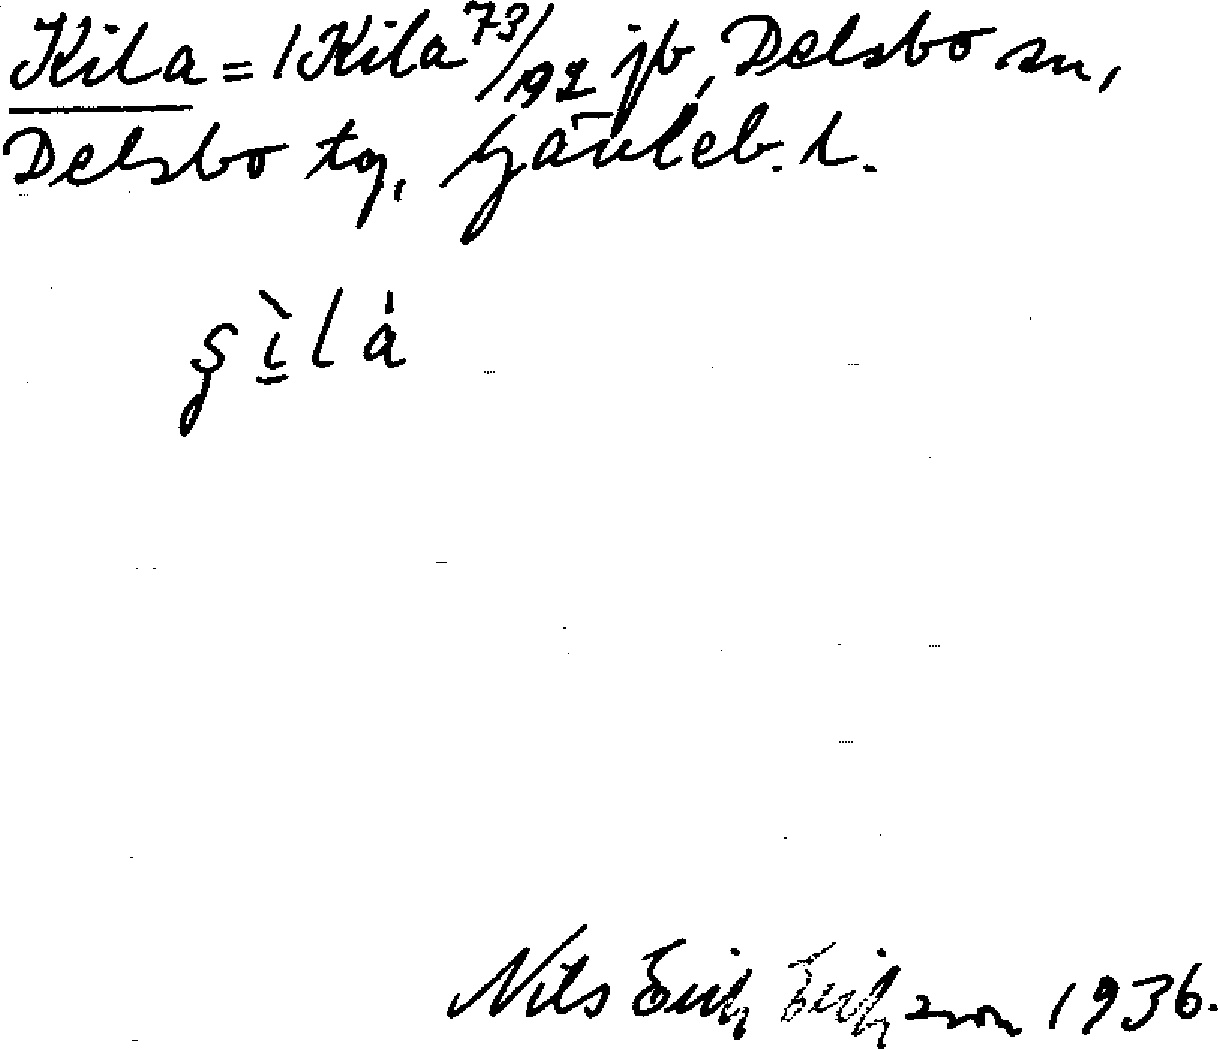 Kila = 1 Kila 73/192 jb, Delsbo sn,
Delsbo tg, Gävleb. l.
Nils Erik Eriksson 1936.